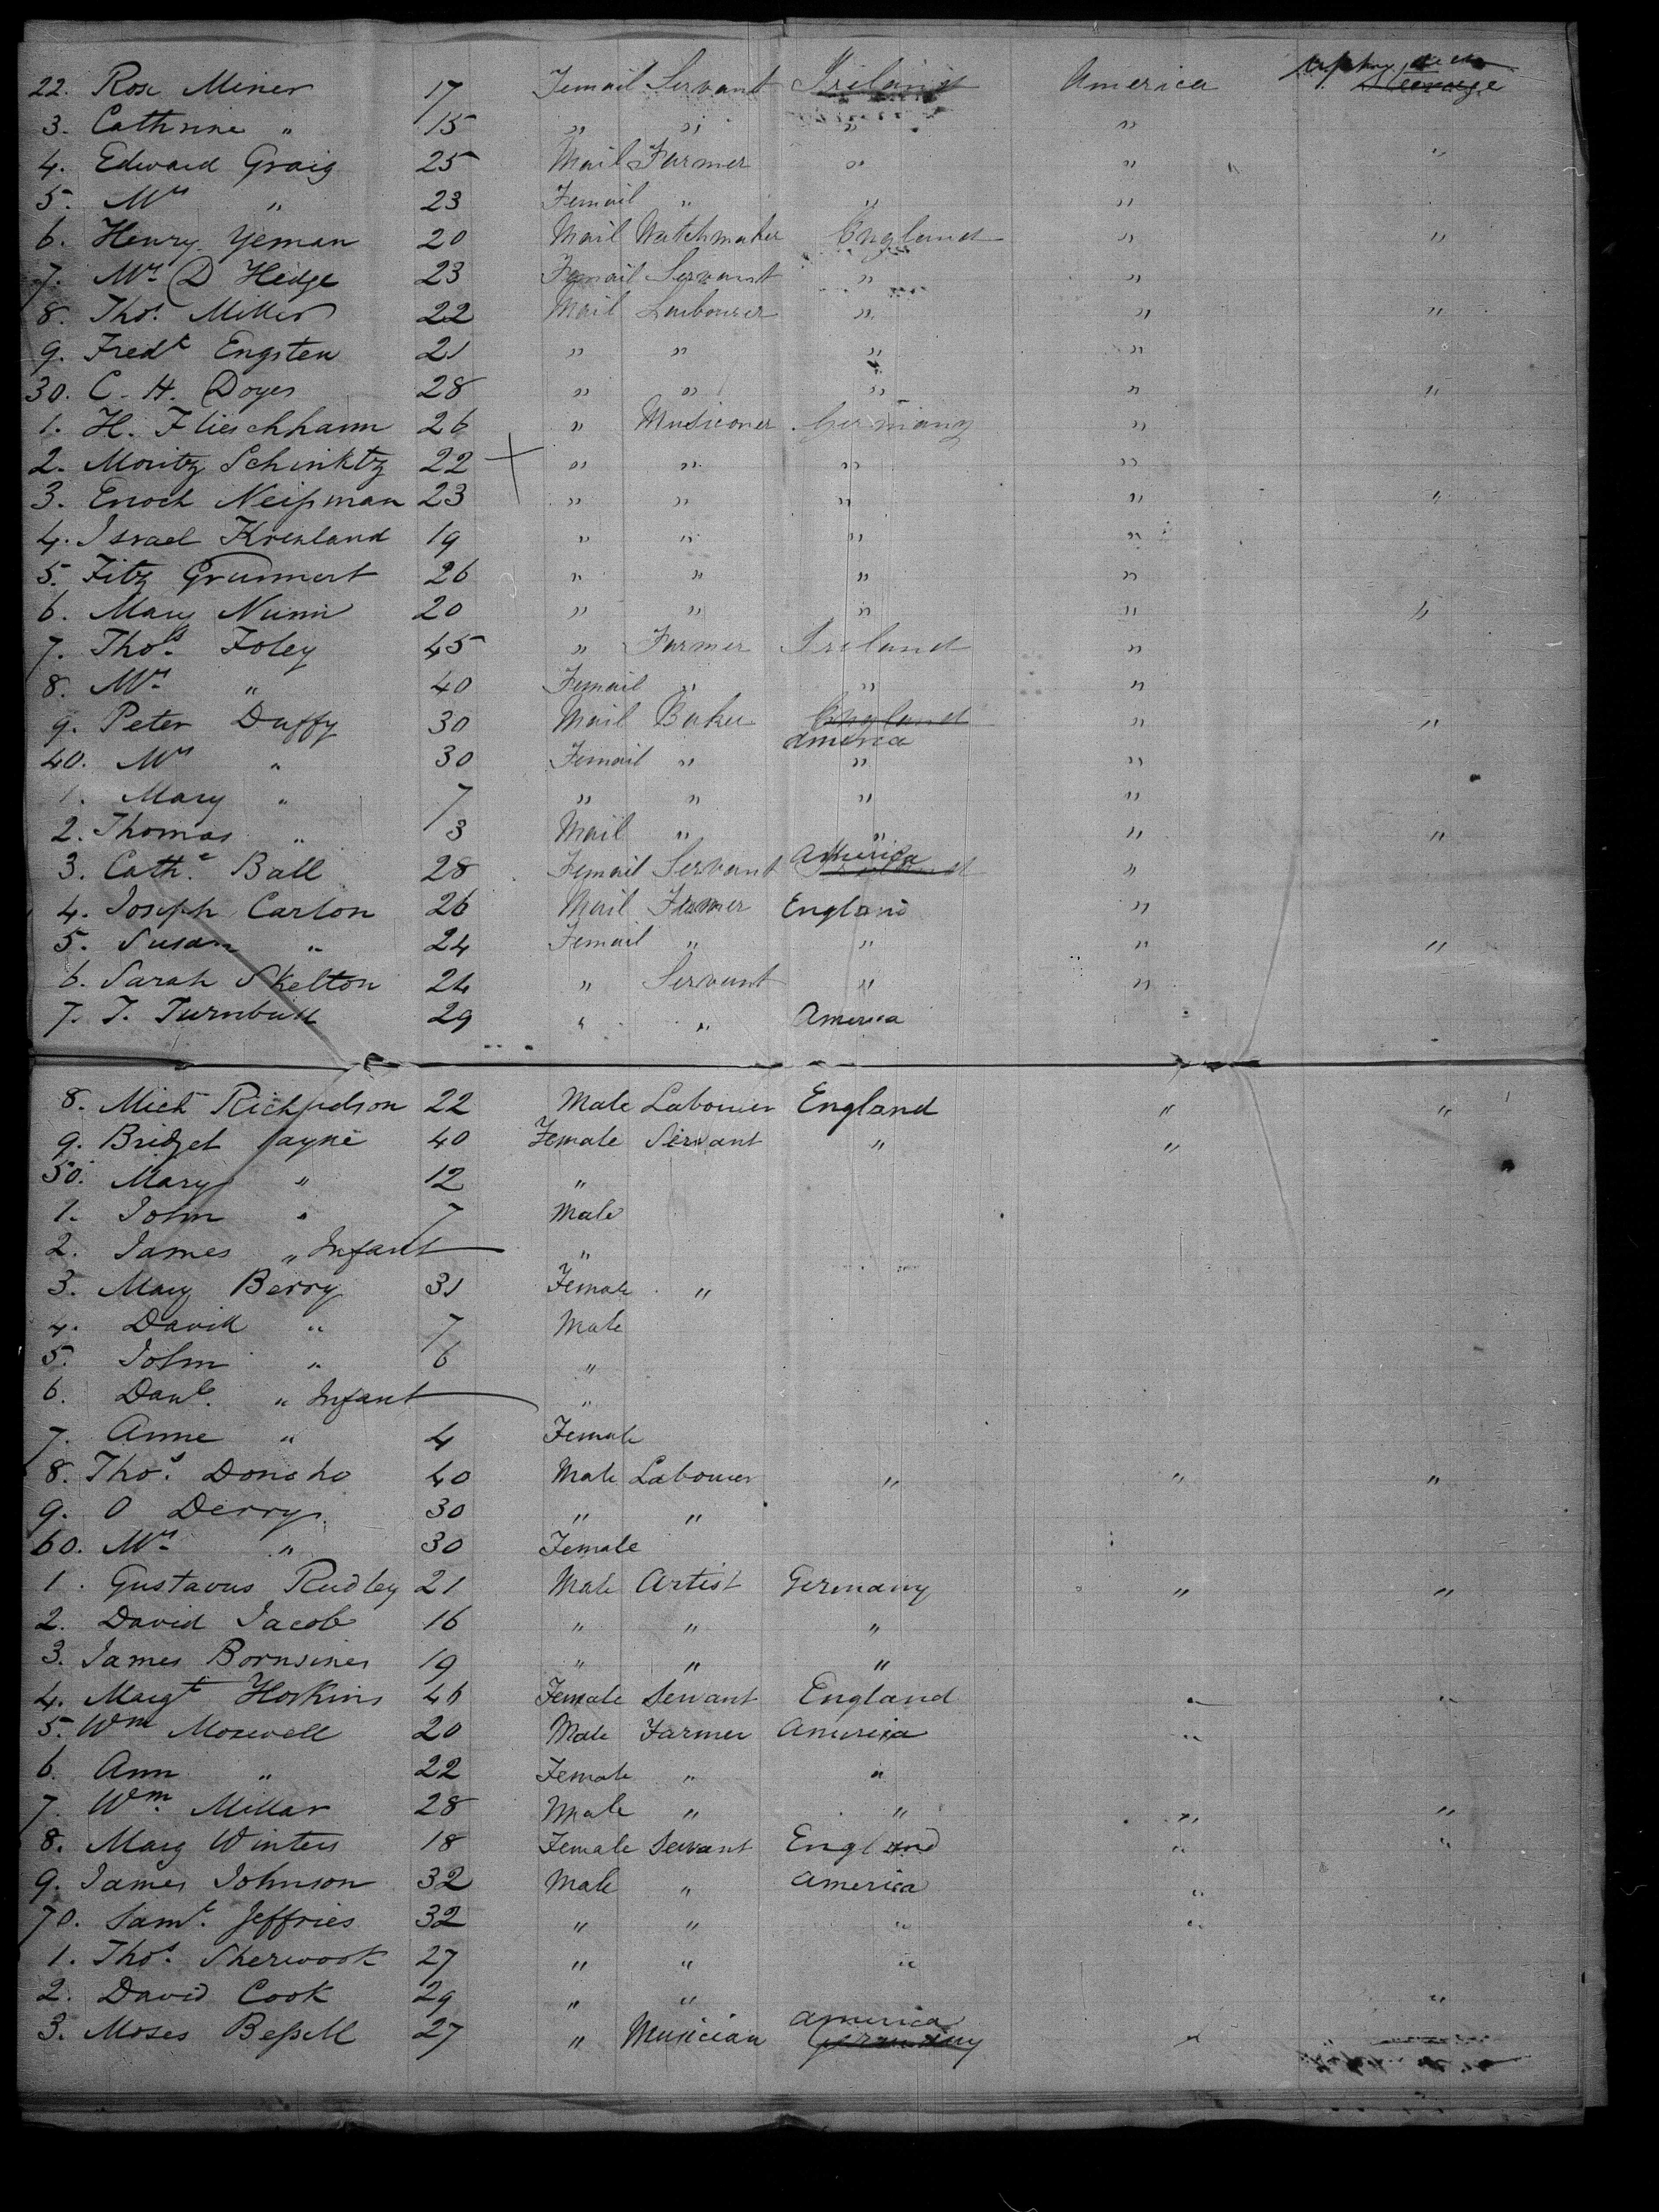 22. Rose Miner 17 Femail Servant Ireland America Steerage
3. Cathrine " 15 " " " "
4. Edward Graig 25 Mail Farmer " " "
5. Mrs " 23 Femail " " "
6. Henry Yeman 20 Mail Watchmaker England " "
7. Mrs D Hedge 23 Femail Servant " "
8. Thos. Miller 22 Mail Laibourer " " "
9. Fredk Engsten 21 " " " "
30. C. H. Doyes 28 " " " " "
1. H. Flieschhamm 26 " Musicioner Germany "
2. Moritz Schinktz 22 " " " "
3. Enoch Neissman 23 " " " " "
4. Israel Kreuland 19 " " " "
5. Fitz Grunmert 26 " " " "
6. Mary Nunn 20 " " " " "
7. Thos. Foley 45 " Farmer Ireland "
8. Mrs " 40 Femail " " "
9. Peter Duffy 30 Mail Baker England " "
America
40. Mrs " 30 Femail " " "
1. Mary " 7 " " " "
2. Thomas " 3 Mail " " " "
America
3. Cathe. Ball 28 Femail Servant Ireland "
4. Joseph Carlon 26 Mail Farmer England "
5. Susan " 24 Femail " " " "
6. Sarah Skelton 24 " Servant " "
7. T. Turnbull 29 " " America
8. Mich Richardson 22 Male Labourer England " "
9. Bridget Payne 40 Female Servant " "
50. Mary " 12 "
1. John " 7 Male
2. James " Infant "
3. Mary Berry 31 Female "
4. David " 7 Male
5. John " 6 "
6. Danl. " Infant "
7. Anne " 4 Female
8. Thos. Donoho 40 Male Labourer " " "
9. O Derry 30 " "
60. Mrs " 30 Female
1. Gustavus Rudley 21 Male Artist Germany " "
2. David Jacob 16 " " "
3. James Bornsines 19 " " "
4. Margt Hoskins 46 Female Servant England " "
5. Wm Moxwell 20 Male Farmer America "
6. Ann " 22 Female " "
7. Wm. Millar 28 Male " " " "
8. Mary Winters 18 Female Servant England " "
9. James Johnson 32 Male " America "
70. Saml. Jeffries 32 " " " "
1. Thos. Sherwook 27 " " "
2. David Cook 29 " " "
America
3. Moses Bessell 27 " Musician Germany "